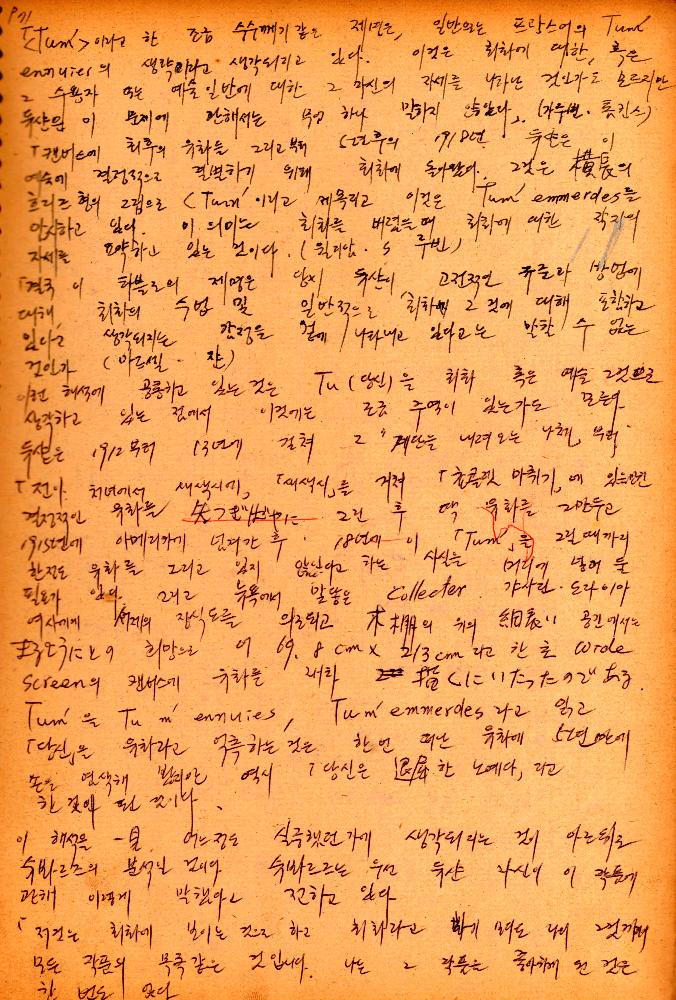 P71
「<Tum'>이라고 한 조금 수수께끼같은 제명은, 일반으로 프랑스어의 Tum'
ennuier의 생략이라고 생각되리고 있다. 이것은 회화에 대한, 혹은
그 수용자 또는 예술일반에 대한 그 자신의 자세를 나타낸 것인가도 모르지만
뒤샹은 이 문제에 관해서는 무엇 하나 말하지 않았다」. (톰킨스)
「캔버스에 최후의 유화를 그리고부터 5년후의 1918년 뒤샹은 이
예술에 결정적으로 결별하기 위해 회화에 돌아왔다. 그것은 横長의
프리즈형의 그림으로 <Tum' 이라고 제목되고 이것은 Tum' emmerdes를
암시하고 있다. 이 의미는 회화를 버렸을때 회화에 대한 작자의
자세를 요약하고 있는 것이다. (윌리암. S 루빈)
「결국 이 타블로의 제명은 당시 뒤샹이 고전적인 수준과 방법에
대해 회화의 수법 및 일반적으로 회화에 그것에 대해 포함하고
있다고 생각되지는 감정을 겉에 나타내고 있다고는 말할 수 없는
것인가 (마르셀 · 쟝)
이런 해석에 공통하고 있는것은 Tu (당신)을 회화 혹은 예술 그것으로
생각하고 있는 점에서 이것에는 조금 주역이 있는가도 모른다.
뒤샹은 1912부터 13년에 걸쳐 그 "계단을 내려오는 나체, 부터
「전이. 처녀에서 새색시에, 「새색시」를 거쳐 「쵸콜렛 마쇄기, 에 있는
결정적인 유화를 그린 후 딱 유화를 그만두고
1915년에 아메리카에 넘어간 후 · 18년에 이 「Tum'」을 그릴때까지
한점도 유화를 그리고 있지 않았다고 하는 사실은 머리에 넣어 둘
필요가 있다. 그리고 뉴욕에서 알맞은 Collecter 캬사린 · 드라이아
여사에게 서재의 장식도를 의뢰되고 木棚의 위의 細長い 공간에서는
희망으로 이 69.8cm x 213cm 라고 한 wide
screen의 캔버스에 유화를 描くにいたったのである.
Tum'을 Tu m' ennuies, Tum' emmerdes 라고 읽고
「당신」을 유화라고 억측하는 것은 한번 떠난 유화에 5년만에
손을 염색해 역시 「당신은 退屈한 노예다, 라고
한 것이 된 것이다.
이 해석을 一見 어느정도 실증했던가에 생각되리는 것이 아르튜로
슈바르츠의 분석인 것이다 슈바르츠는 우선 뒤샹 자신이 이 작품에
관해 이렇게 말했다고 전하고 있다
「저것은 회화에 보이는 것으로 하고 회화라고 나의 그것까지
모든 작품의 목록같은 것입니다. 나는 그 작품을 좋아하게 된 것은
한 번도 없다